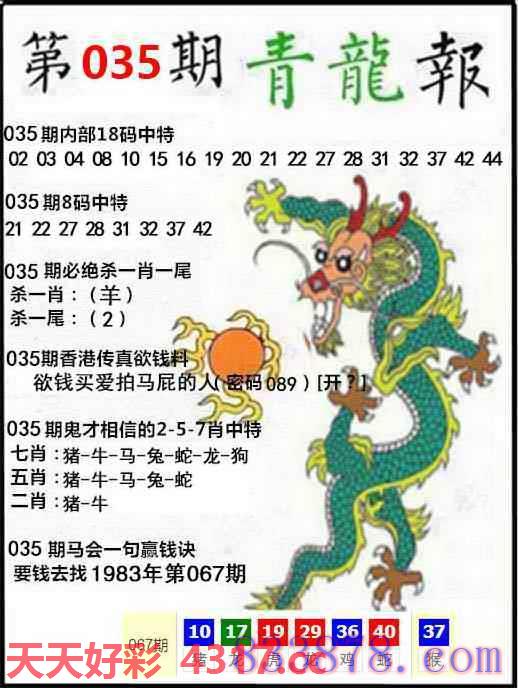 第035期青龍報
035期内部18码中特
02 03 04 08 10 15 16 19 20 21 22 27 28 31 32 37 42 44
035期8码中特
21 22 27 28 31 32 37 42
035 期必绝杀一肖一尾
杀一肖：（羊）
杀一尾：（2）
035期香港传真欲钱料
欲钱买爱拍马屁的人(密码089）[开？]
035期鬼才相信的2-5-7肖中特
七肖：猪-牛-马-兔-蛇-龙-狗
五肖：猪-牛-马-兔-蛇
二肖：猪-牛
035 期马会一句赢钱诀
要钱去找1983年第067期
067期 10 17 19 29 36 40 37
猪 龙 虎 龙 鸡 蛇 猴
天天好彩 4317.cc